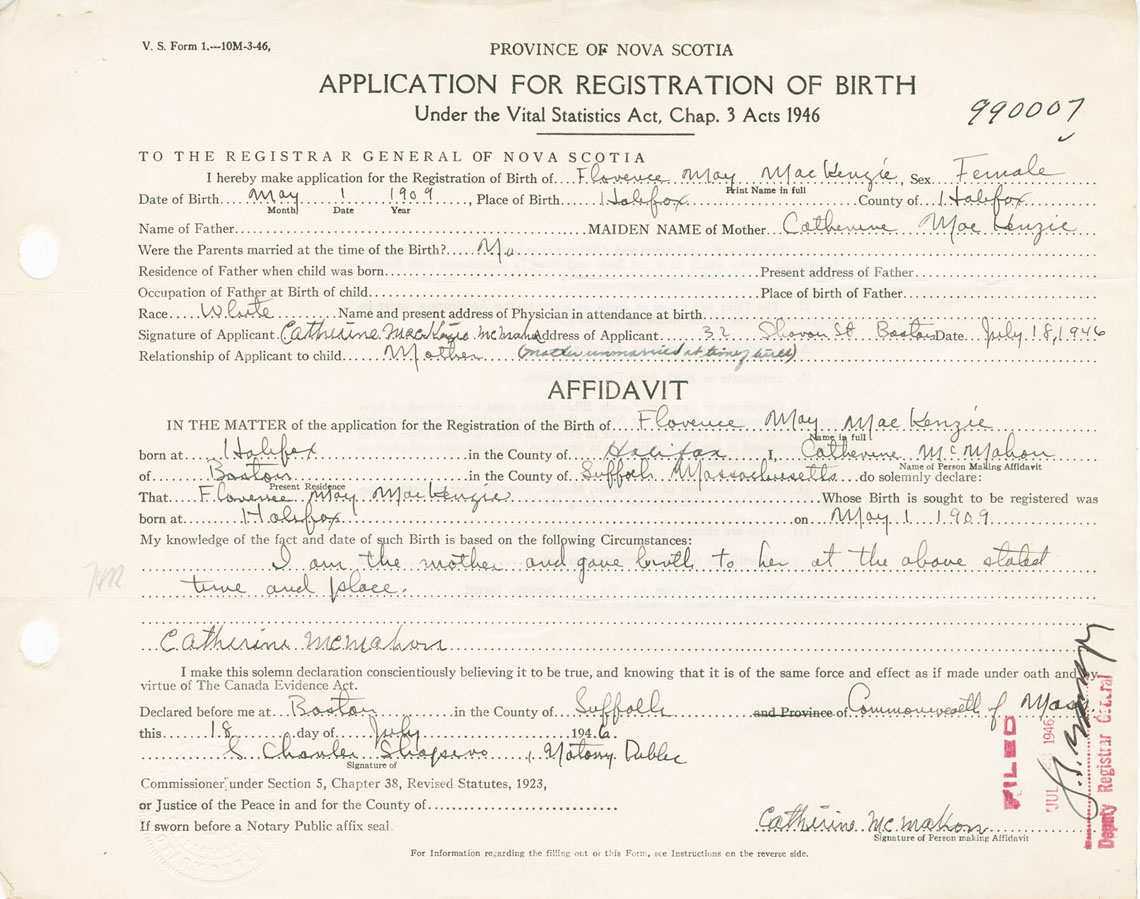 V. S. Form 1.—10M-3-46,
PROVINCE OF NOVA SCOTIA
APPLICATION FOR REGISTRATION OF BIRTH
Under the Vital Statistics Act, Chap. 3 Acts 1946
990007
TO THE REGISTRAR GENERAL OF NOVA SCOTIA
I hereby make application for the Registration of Birth of Florence May MacKenzie, Sex Female
Print Name in full
Date of Birth May 1 1909, Place of Birth Halifax County of Halifax
Month Date Year
Name of Father MAIDEN NAME of Mother Catherine MacKenzie
Were the Parents married at the time of the Birth? No
Residence of Father when child was born Present address of Father
Occupation of Father at Birth of child Place of birth of Father
Race White Name and present address of Physician in attendance at birth
Signature of Applicant Catherine MacKenzie McMahon Address of Applicant 32 Sharon St Boston Date July 18, 1946
Relationship of Applicant to child Mother (mother unmarried at time birth)
AFFIDAVIT
IN THE MATTER of the application for the Registration of the Birth of Florence May MacKenzie
Name in full
born at Halifax in the County of Halifax I, Catherine McMahon
Name of Person Making Affidavit
of Boston in the County of Suffolk Massachusetts do solemnly declare:
Present Residence
That Florence May MacKenzie Whose Birth is sought to be registered was
born at Halifax on May 1 1909
My knowledge of the fact and date of such Birth is based on the following Circumstances:
I am the mother and gave birth to her at the above stated
time and place.
Catherine McMahon
I make this solemn declaration conscientiously believing it to be true, and knowing that it is of the same force and effect as if made under oath and by
virtue of The Canada Evidence Act.
Declared before me at Boston in the County of Suffolk and Province of Commonwealth of Mass
this 18 day of July 1946
S. Charles Shapiro, Notary Public
Signature of
Commissioner under Section 5, Chapter 38, Revised Statutes, 1923,
or Justice of the Peace in and for the County of
If sworn before a Notary Public affix seal.
Catherine McMahon
Signature of Person making Affidavit
FILED
JUL 1946
Deputy Registrar General
For Information regarding the filling out of this Form, see Instructions on the reverse side.